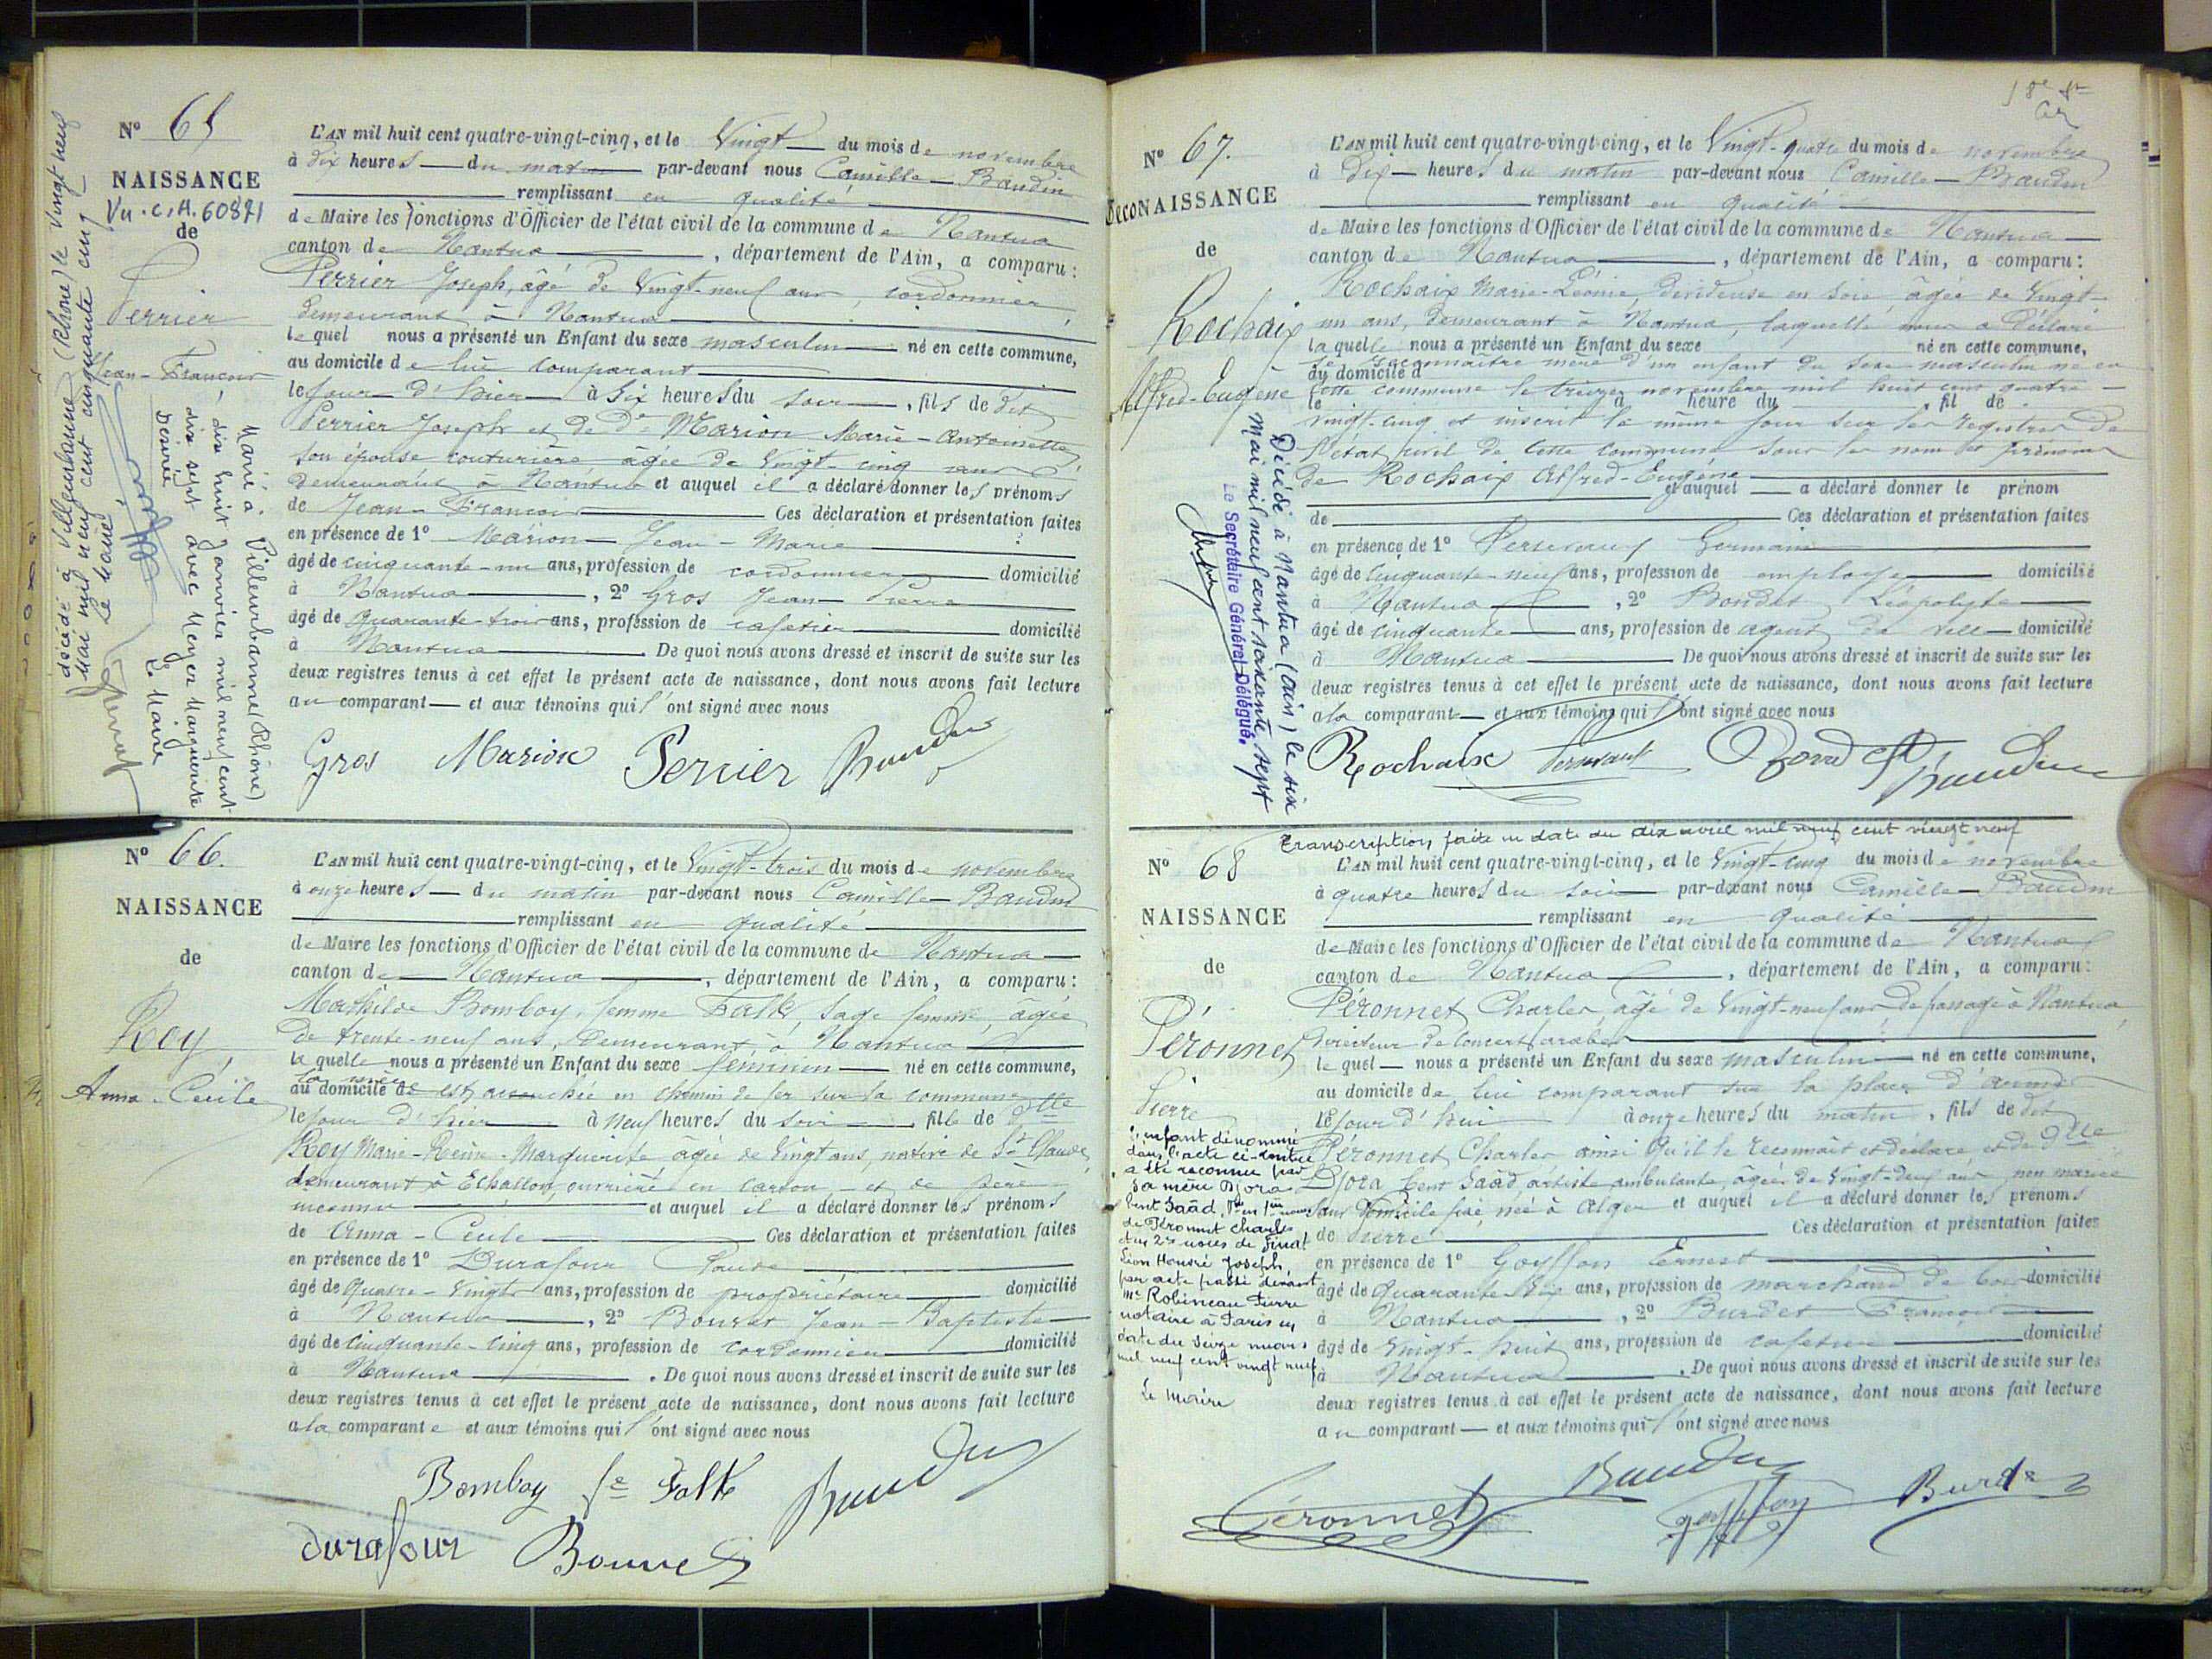 Nº 65
NAISSANCE
Vu. C.A. 60871
de
Perrier
Jean-François
Marié à Villeurbanne (Rhône)
dix huit janvier mil neuf cent
dix sept avec Meyer Marguerite
Désirée
Le Maire
décédé à Villeurbanne (Rhône) le vingt neuf
Mai mil neuf cent cinquante cinq
Le Maire
L'AN mil huit cent quatre-vingt-cinq, et le Vingt du mois de novembre
à dix heures du matin par-devant nous Camille Baudin
remplissant en qualité
de Maire les fonctions d'Officier de l'état civil de la commune de Nantua
canton de Nantua, département de l'Ain, a comparu:
Perrier Joseph, âgé de Vingt-neuf ans, cordonnier,
demeurant à Nantua
lequel nous a présenté un Enfant du sexe masculin né en cette commune,
au domicile de lui comparant
le jour d'hier à six heures du soir, fils de dit
Perrier Joseph et de De Marion Marie-Antoinette,
son épouse couturière âgée de Vingt-cinq ans
demeurant à Nantua et auquel il a déclaré donner les prénoms
de Jean-François Ces déclaration et présentation faites
en présence de 1º Marion Jean-Marie
âgé de cinquante-un ans, profession de cordonnier domicilié
à Nantua, 2º Gros Jean Pierre
âgé de Quarante-trois ans, profession de cafetier domicilié
à Nantua. De quoi nous avons dressé et inscrit de suite sur les
deux registres tenus à cet effet le présent acte de naissance, dont nous avons fait lecture
au comparant et aux témoins qui l'ont signé avec nous
Gros Marion Perrier Baudin
Nº 66.
NAISSANCE
de
Roy,
Anna-Cécile
L'AN mil huit cent quatre-vingt-cinq, et le Vingt-trois du mois de novembre
à onze heures du matin par-devant nous Camille Baudin
remplissant en qualité
de Maire les fonctions d'Officier de l'état civil de la commune de Nantua
canton de Nantua, département de l'Ain, a comparu:
Mathilde Bomboy, femme Falk, sage femme, âgée
de trente-neuf ans, demeurant à Nantua
la quelle nous a présenté un Enfant du sexe féminin né en cette commune,
la mère
au domicile de est accouchée en chemin de fer sur la commune
le jour d'hier à neuf heures du soir, fille de Dlle
Roy Marie-Reine-Marguerite âgée de Vingt ans, native de St Claude,
demeurant à Echallon, ouvrière en carton et de père
inconnu et auquel il a déclaré donner les prénoms
de Anna-Cécile Ces déclaration et présentation faites
en présence de 1º Durafour Claude
âgé de Quatre-Vingts ans, profession de propriétaire domicilié
à Nantua, 2º Bouvet Jean-Baptiste
âgé de Cinquante-cinq ans, profession de cordonnier domicilié
à Nantua. De quoi nous avons dressé et inscrit de suite sur les
deux registres tenus à cet effet le présent acte de naissance, dont nous avons fait lecture
à la comparante et aux témoins qui l'ont signé avec nous
Bomboy fe Falk Baudin
Durafour Bouvet
18e
Nº 67.
RecoNAISSANCE
de
Rochaix
Alfred-Eugène
Décédé à Nantua (ain) le six
Mai mil neuf cent soixante sept
Le Secrétaire Général Délégué,
L'AN mil huit cent quatre-vingt-cinq, et le Vingt-quatre du mois de novembre
à Dix heures du matin par-devant nous Camille Baudin
remplissant en qualité
de Maire les fonctions d'Officier de l'état civil de la commune de Nantua
canton de Nantua, département de l'Ain, a comparu:
Rochaix Marie-Léonie, dévideuse en soie âgée de Vingt-
un ans, demeurant à Nantua, laquelle nous a déclaré
la quelle nous a présenté un Enfant du sexe né en cette commune,
se reconnaître mère d'un enfant du sexe masculin né en
au domicile d
cette commune le treize novembre mil huit cent quatre-
le à heure du, fil de
vingt-cinq et inscrit le même jour sur les registres de
l'état civil de cette commune sous les nom et prénoms
de Rochaix Alfred-Eugène
et auquel a déclaré donner le prénom
de Ces déclaration et présentation faites
en présence de 1º Germain
âgé de Cinquante-neuf ans, profession de employé domicilié
à Nantua, 2º Bondet Léopolyte
âgé de cinquante ans, profession de agent de ville domicilié
à Nantua De quoi nous avons dressé et inscrit de suite sur les
deux registres tenus à cet effet le présent acte de naissance, dont nous avons fait lecture
à la comparant et aux témoins qui l'ont signé avec nous
Rochaix Bondet Baudin
transcription faite en date du dix avril mil neuf cent vingt neuf
Nº 68
NAISSANCE
de
Péronnet
Pierre
L'enfant dénommé
dans l'acte ci-contre
a été reconnu par
sa mère Djora
bent Saâd, Vve en 1res noces
de Péronnet Charles
et en 2es noces de Finat
Léon Honoré Joseph,
par acte passé devant
Me Robineau Pierre
notaire à Paris en
date du seize mars
mil neuf cent vingt neuf
Le Maire
L'AN mil huit cent quatre-vingt-cinq, et le Vingt-cinq du mois de novembre
à quatre heures du soir par-devant nous Camille Baudin
remplissant en qualité
de Maire les fonctions d'Officier de l'état civil de la commune de Nantua
canton de Nantua, département de l'Ain, a comparu:
Péronnet Charles, âgé de Vingt-neuf ans de passage à Nantua,
Directeur de Concert arabe
le quel nous a présenté un Enfant du sexe masculin né en cette commune,
au domicile de lui comparant sur la place d'armes
le jour d'hui à onze heures du matin, fils de dit
Péronnet Charles ainsi qu'il le reconnait et déclare, et de Dlle
Djora bent Saâd, artiste ambulante, âgée de Vingt-deux ans, non mariée
sans domicile fixe, née à Alger et auquel il a déclaré donner les prénoms
de Pierre Ces déclaration et présentation faites
en présence de 1º Goyffon Ernest
âgé de Quarante six ans, profession de marchand de bois domicilié
à Nantua, 2º Burdet François
âgé de Vingt-huit ans, profession de cafetier domicilié
à Nantua. De quoi nous avons dressé et inscrit de suite sur les
deux registres tenus à cet effet le présent acte de naissance, dont nous avons fait lecture
au comparant et aux témoins qui l'ont signé avec nous
Péronnet Baudin Goyffon Burdet